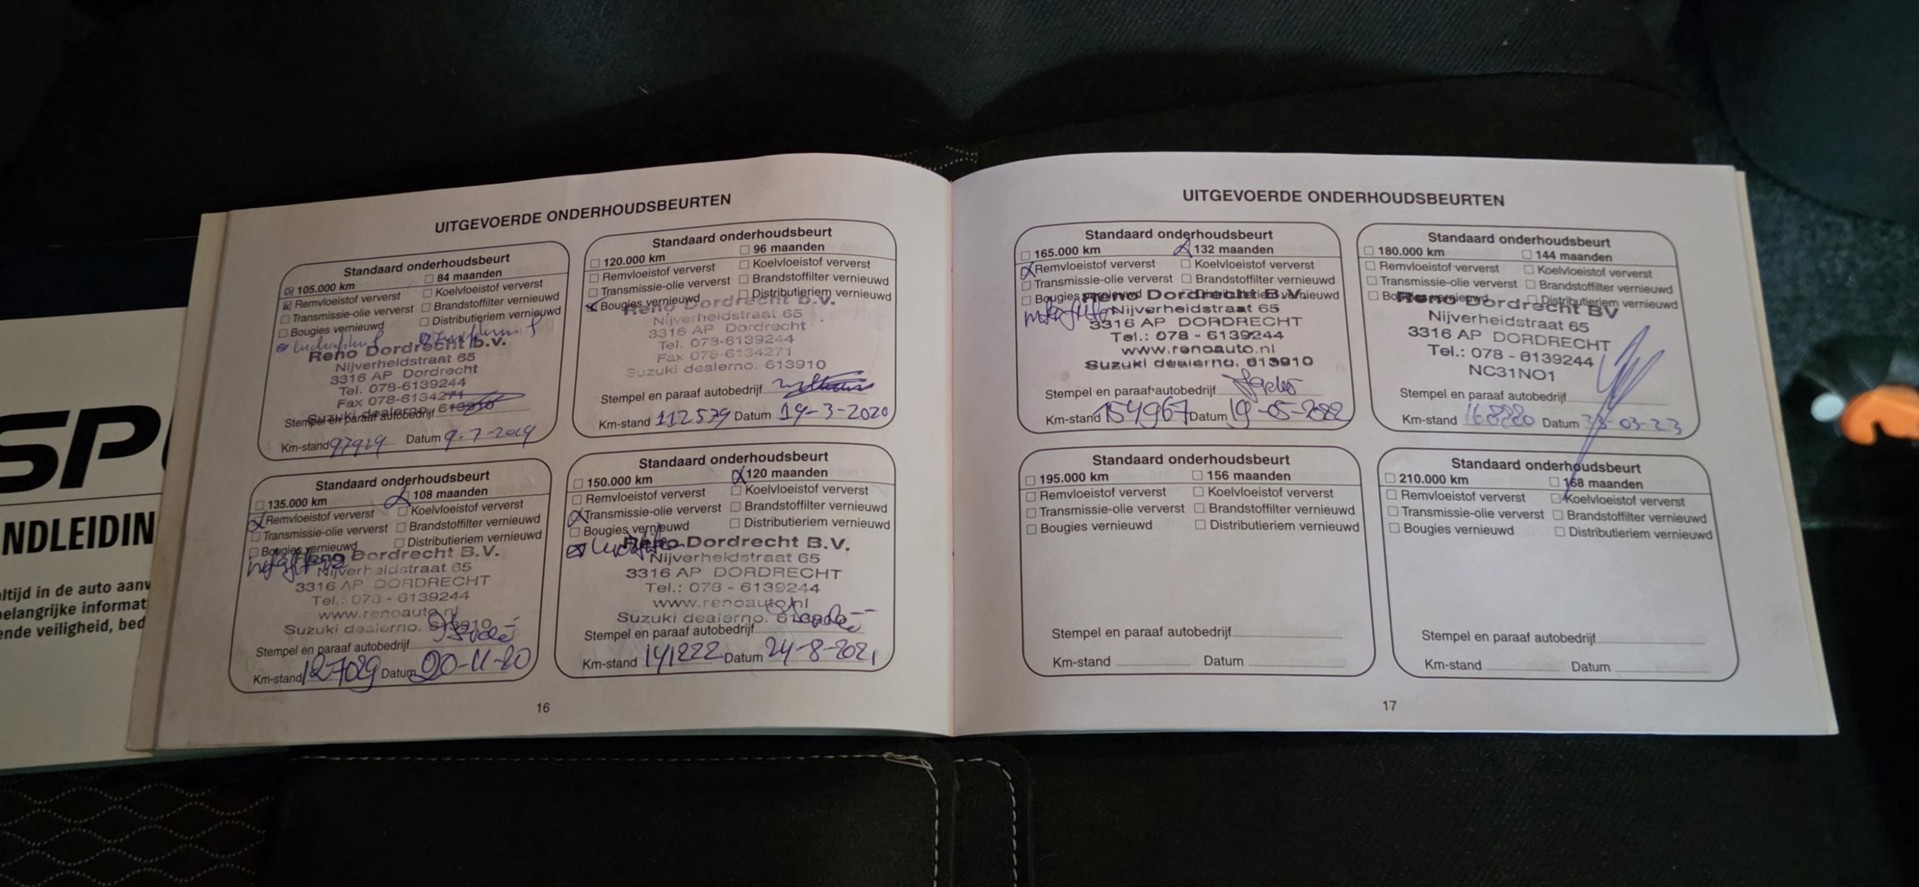 SP
NDLEIDIN
ltijd in de auto aanv
belangrijke informat
ende veiligheid, bed
UITGEVOERDE ONDERHOUDSBEURTEN
Standaard onderhoudsbeurt
105.000 km 84 maanden
Remvloeistof ververst Koelvloeistof ververst
Transmissie-olie ververst Brandstoffilter vernieuwd
Bougies vernieuwd Distributieriem vernieuwd
Reno Dordrecht b.v.
Nijverheidstraat 65
3316 AP Dordrecht
Tel. 078-6139244
Fax 078-6134271
Suzuki dealerno. 613910
Stempel en paraaf autobedrijf
Km-stand 97929 Datum 9-7-2019
Standaard onderhoudsbeurt
120.000 km 96 maanden
Remvloeistof ververst Koelvloeistof ververst
Transmissie-olie ververst Brandstoffilter vernieuwd
Bougies vernieuwd Distributieriem vernieuwd
Reno Dordrecht b.v.
Nijverheidstraat 65
3316 AP Dordrecht
Tel. 078-6139244
Fax 078-6134271
Suzuki dealerno. 613910
Stempel en paraaf autobedrijf
Km-stand 112579 Datum 19-3-2020
Standaard onderhoudsbeurt
135.000 km 108 maanden
Remvloeistof ververst Koelvloeistof ververst
Transmissie-olie ververst Brandstoffilter vernieuwd
Bougies vernieuwd Distributieriem vernieuwd
Reno Dordrecht B.V.
Nijverheidstraat 65
3316 AP DORDRECHT
Tel.: 078 - 6139244
www.renoauto.nl
Suzuki dealerno. 613910
Stempel en paraaf autobedrijf
Km-stand 127029 Datum 20-11-20
Standaard onderhoudsbeurt
150.000 km 120 maanden
Remvloeistof ververst Koelvloeistof ververst
Transmissie-olie ververst Brandstoffilter vernieuwd
Bougies vernieuwd Distributieriem vernieuwd
Reno Dordrecht B.V.
Nijverheidstraat 65
3316 AP DORDRECHT
Tel.: 078 - 6139244
www.renoauto.nl
Suzuki dealerno. 613910
Stempel en paraaf autobedrijf
Km-stand 141222 Datum 24-8-2021
16
UITGEVOERDE ONDERHOUDSBEURTEN
Standaard onderhoudsbeurt
165.000 km 132 maanden
Remvloeistof ververst Koelvloeistof ververst
Transmissie-olie ververst Brandstoffilter vernieuwd
Bougies vernieuwd Distributieriem vernieuwd
Reno Dordrecht B.V.
Nijverheidstraat 65
3316 AP DORDRECHT
Tel.: 078 - 6139244
www.renoauto.nl
Suzuki dealerno. 613910
Stempel en paraaf autobedrijf
Km-stand 154967 Datum 19-05-2022
Standaard onderhoudsbeurt
180.000 km 144 maanden
Remvloeistof ververst Koelvloeistof ververst
Transmissie-olie ververst Brandstoffilter vernieuwd
Bougies vernieuwd Distributieriem vernieuwd
Reno Dordrecht BV
Nijverheidstraat 65
3316 AP DORDRECHT
Tel.: 078 - 6139244
NC31NO1
Stempel en paraaf autobedrijf
Km-stand 168880 Datum 03-23
Standaard onderhoudsbeurt
195.000 km 156 maanden
Remvloeistof ververst Koelvloeistof ververst
Transmissie-olie ververst Brandstoffilter vernieuwd
Bougies vernieuwd Distributieriem vernieuwd
Stempel en paraaf autobedrijf
Km-stand Datum
Standaard onderhoudsbeurt
210.000 km 168 maanden
Remvloeistof ververst Koelvloeistof ververst
Transmissie-olie ververst Brandstoffilter vernieuwd
Bougies vernieuwd Distributieriem vernieuwd
Stempel en paraaf autobedrijf
Km-stand Datum
17